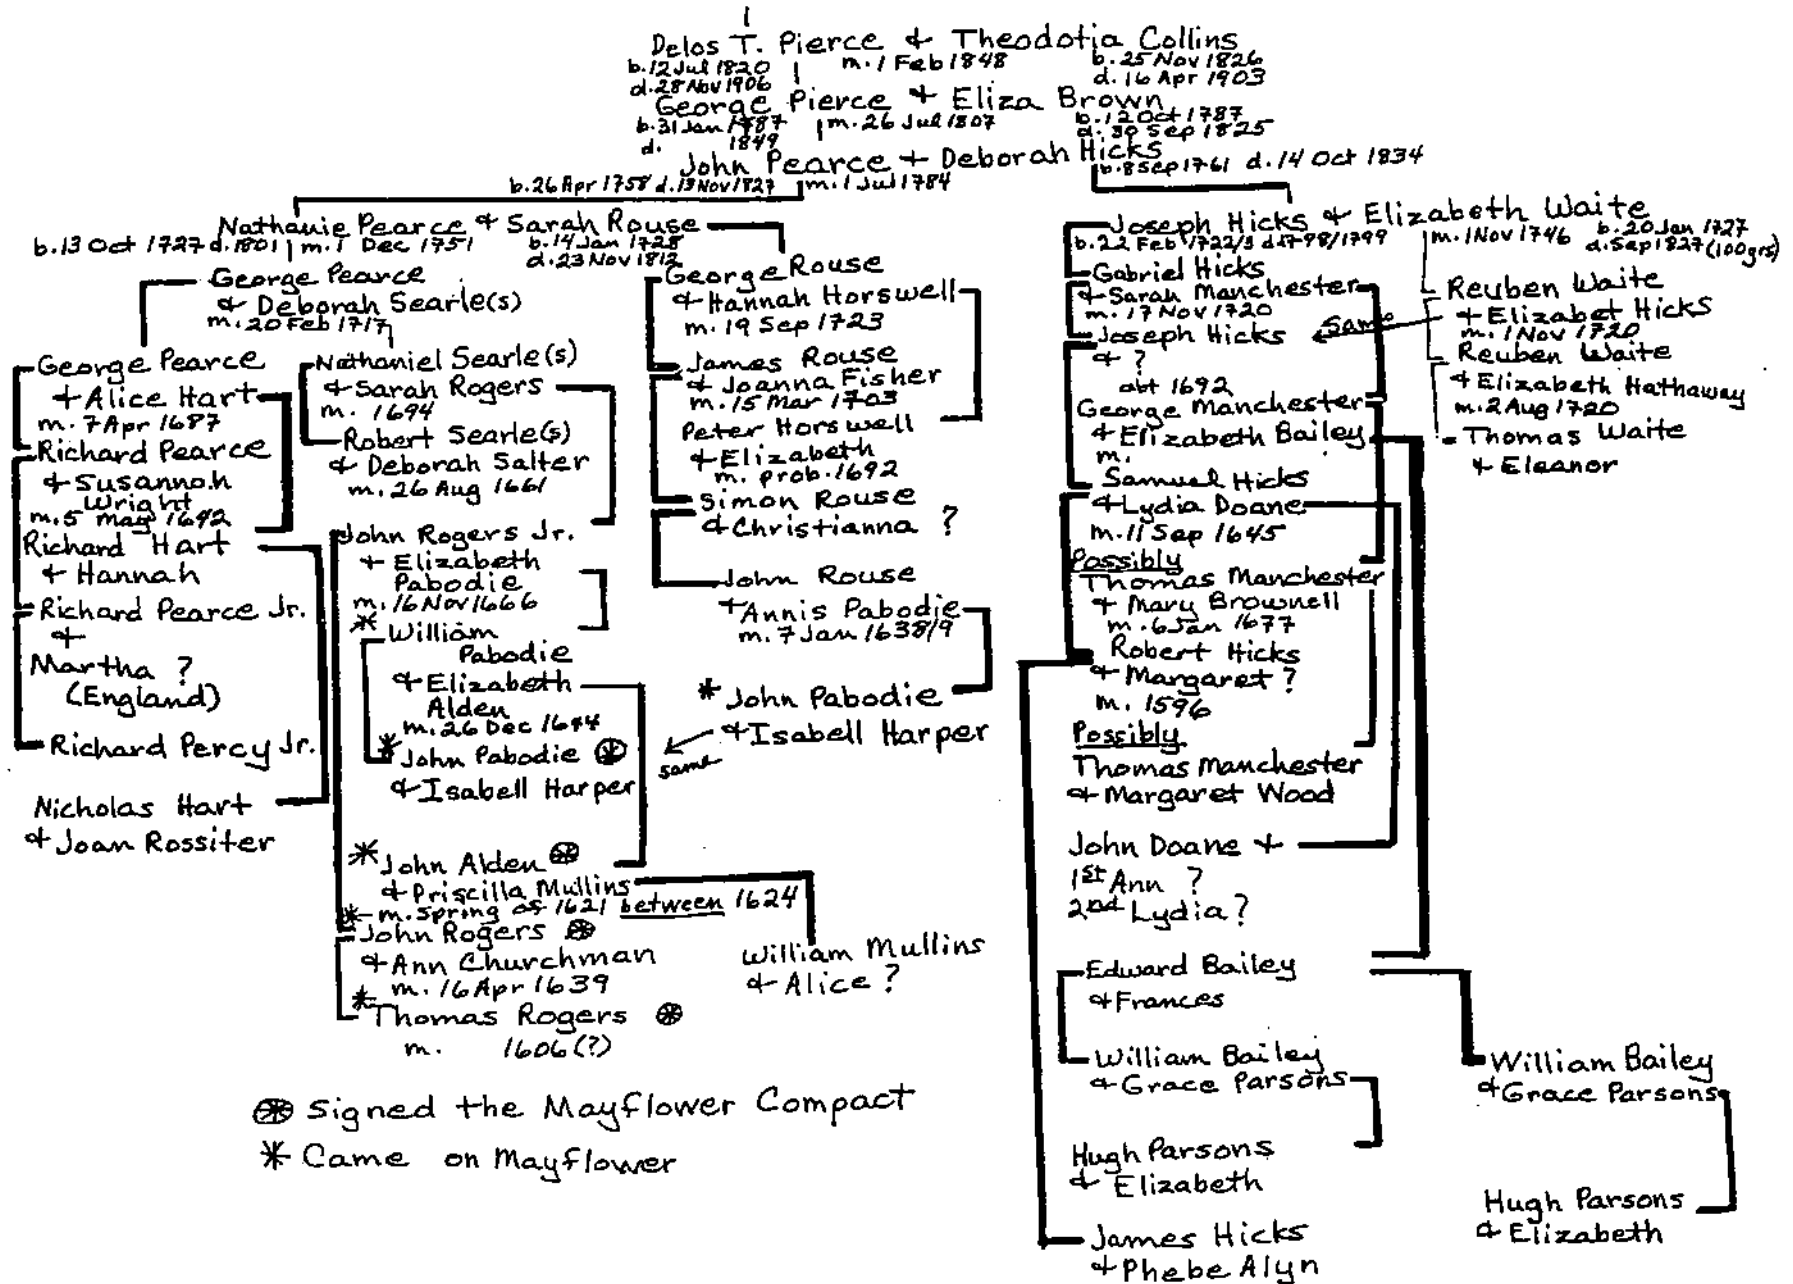 Delos T. Pierce & Theodotia Collins
b. 12 Jul 1820 m. 1 Feb 1848 b. 25 Nov 1826
d. 28 Nov 1906 d. 16 Apr 1903
George Pierce & Eliza Brown
b. 31 Jan 1787 m. 26 Jul 1807 b. 12 Oct 1787
d. 1849 d. 30 Sep 1825
John Pearce & Deborah Hicks
b. 26 Apr 1758 d. 13 Nov 1827 m. 1 Jul 1784 b. 8 Sep 1761 d. 14 Oct 1834
Nathanie Pearce & Sarah Rouse
b. 13 Oct 1727 d. 1801 m. 1 Dec 1751 b. 14 Jan 1728
d. 23 Nov 1812
George Pearce
& Deborah Searle(s)
m. 20 Feb 1717
George Pearce
& Alice Hart
m. 7 Apr 1687
Richard Pearce
& Susannah
Wright
m. 5 May 1642
Richard Hart
& Hannah
Richard Pearce Jr.
&
Martha ?
(England)
Richard Percy Jr.
Nicholas Hart
& Joan Rossiter
Nathaniel Searle(s)
& Sarah Rogers
m. 1694
Robert Searle(s)
& Deborah Salter
m. 26 Aug 1661
John Rogers Jr.
& Elizabeth
Pabodie
m. 16 Nov 1666
* William
Pabodie
& Elizabeth
Alden
m. 26 Dec 1644
* John Pabodie
& Isabell Harper
* John Alden
& Priscilla Mullins
* m. Spring of 1621 between 1624
John Rogers
& Ann Churchman
m. 16 Apr 1639
* Thomas Rogers
m. 1606(?)
George Rouse
& Hannah Horswell
m. 19 Sep 1723
James Rouse
& Joanna Fisher
m. 15 Mar 1703
Peter Horswell
& Elizabeth
m. prob. 1692
Simon Rouse
& Christianna ?
John Rouse
+ Annis Pabodie
m. 7 Jan 1638/9
* John Pabodie
& Isabell Harper
same
William Mullins
& Alice ?
Joseph Hicks & Elizabeth Waite
b. 22 Feb 1722/3 d. 1798/1799 m. 1 Nov 1746 b. 20 Jan 1727
d. Sep 1827 (100yrs)
Gabriel Hicks
& Sarah Manchester
m. 17 Nov 1720
Joseph Hicks
& ?
abt 1692
George Manchester
& Elizabeth Bailey
m.
Samuel Hicks
& Lydia Doane
m. 11 Sep 1645
Possibly
Thomas Manchester
& Mary Brownell
m. 6 Jan 1677
Robert Hicks
& Margaret ?
m. 1596
Possibly
Thomas Manchester
& Margaret Wood
John Doane &
1st Ann ?
2nd Lydia ?
Edward Bailey
& Frances
William Bailey
& Grace Parsons
Hugh Parsons
& Elizabeth
James Hicks
& Phebe Alyn
Reuben Waite
& Elizabet Hicks
same
m. 1 Nov 1720
Reuben Waite
& Elizabeth Hathaway
m. 2 Aug 1720
Thomas Waite
& Eleanor
William Bailey
& Grace Parsons
Hugh Parsons
& Elizabeth
Signed the Mayflower Compact
* Came on Mayflower